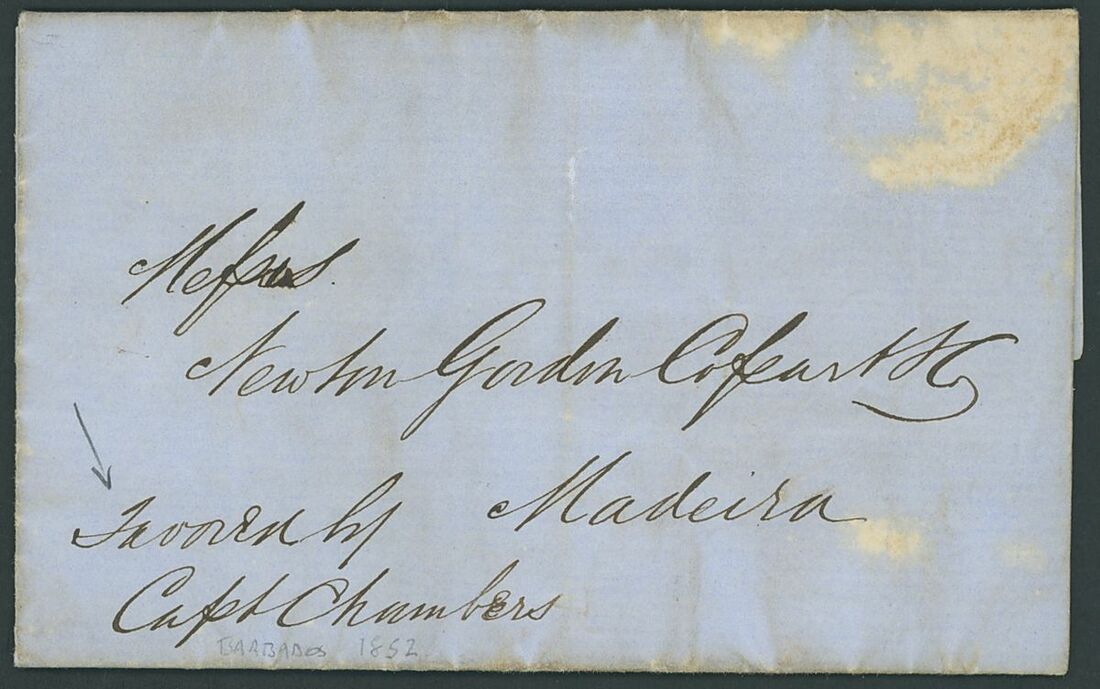 Messrs.
Newton Gordon Cossart & Co
Madeira
Favored by
Capt Chambers
BARBADOS 1852